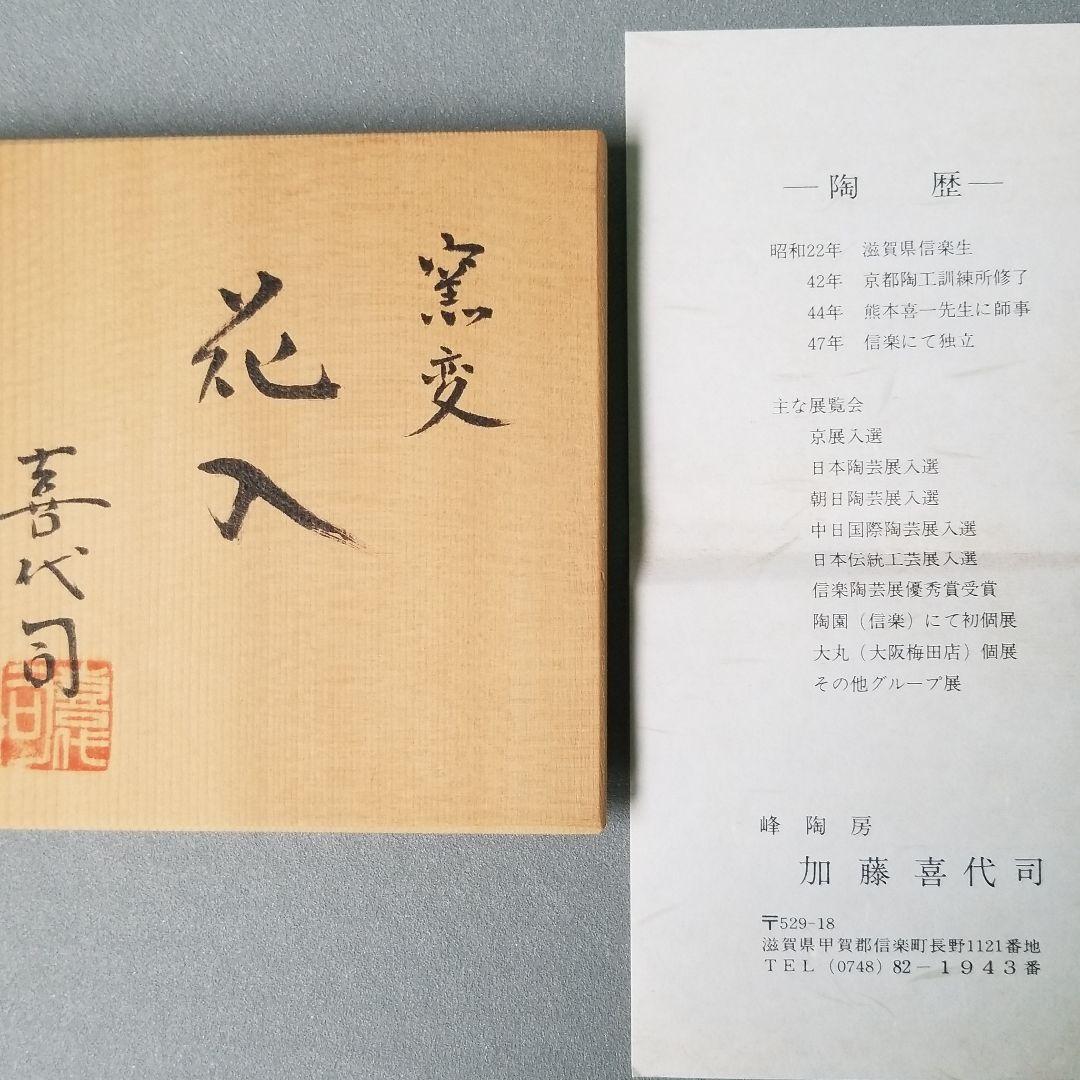 窯変
花入
喜代司
喜代司
―陶 歴―
昭和22年 滋賀県信楽生
42年 京都陶工訓練所修了
44年 熊本喜一先生に師事
47年 信楽にて独立
主な展覧会
京展入選
日本陶芸展入選
朝日陶芸展入選
中日国際陶芸展入選
日本伝統工芸展入選
信楽陶芸展優秀賞受賞
陶園(信楽)にて初個展
大丸(大阪梅田店)個展
その他グループ展
峰陶房
加藤喜代司
〒529-18
滋賀県甲賀郡信楽町長野1121番地
TEL(0748)82-1943番